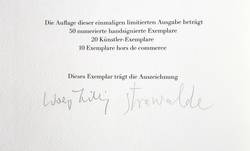 Die Auflage dieser einmaligen limitierten Ausgabe beträgt
50 numerierte handsignierte Exemplare
20 Künstler-Exemplare
10 Exemplare hors de commerce
Dieses Exemplar trägt die Auszeichnung
strawalde